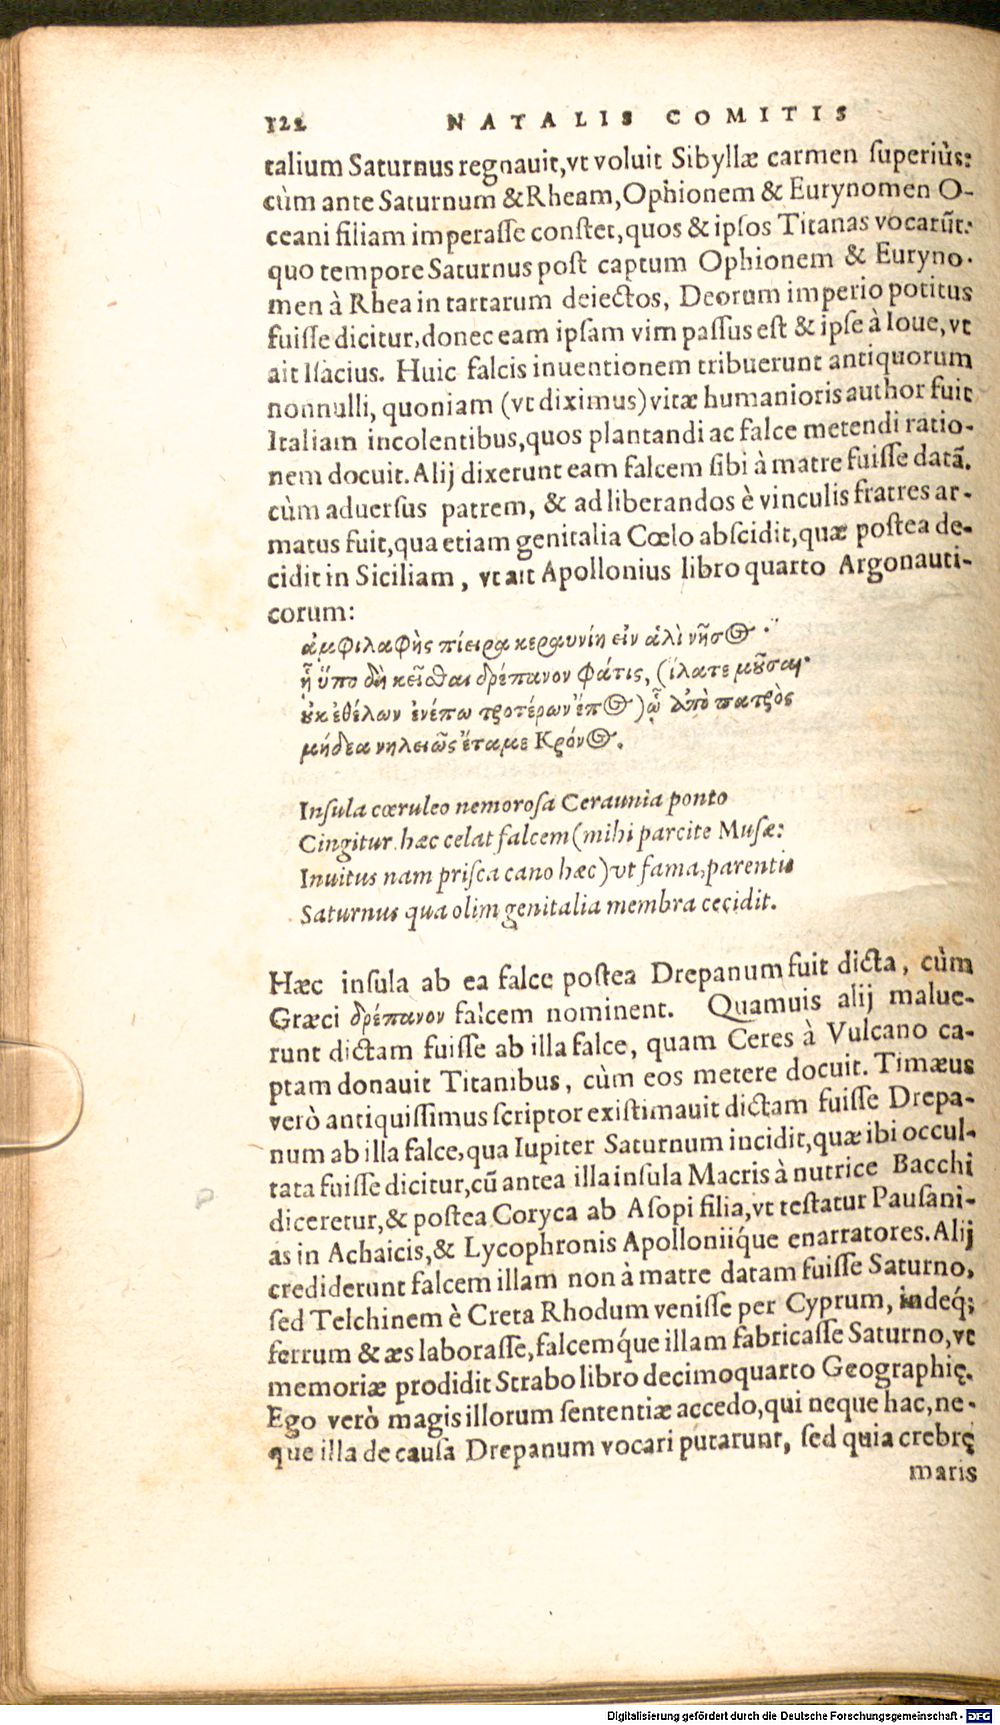 122 NATALIS COMITIS
talium Saturnus regnauit,vt voluit Sibyllæ carmen ſuperiùs:
cùm ante Saturnum & Rheam, Ophionem & Eurynomen O-
ceani filiam imperaſſe conſtet, quos & ipſos Titanas vocarūt:
quo tempore Saturnus poſt captum Ophionem & Euryno-
men à Rhea in tartarum deiectos, Deorum imperio potitus
fuiſſe dicitur, donec eam ipſam vim paſſus eſt & ipſe à Ioue, vt
ait Iſacius. Huic falcis inuentionem tribuerunt antiquorum
nonnulli, quoniam (vt diximus) vitæ humanioris author fuit
Italiam incolentibus, quos plantandi ac falce metendi ratio-
nem docuit. Alij dixerunt eam falcem ſibi à matre fuiſſe datā,
cùm aduerſus patrem, & ad liberandos è vinculis fratres ar-
matus fuit, qua etiam genitalia Cœlo abſcidit, quæ poſtea de-
cidit in Siciliam, vt ait Apollonius libro quarto Argonauti-
corum:
ἀμφιλαφὴς πίειρα κεραυνίη εἰν ἁλὶ νῆσος·
ᾗ ὕπο δὴ κεῖσθαι δρέπανον φάτις, (ἵλατε μοῦσαι·
οὐκ ἐθέλων ἐνέπω προτέρων ἔπος) ᾧ ἀπὸ πατρὸς
μήδεα νηλειῶς ἔταμε Κρόνος.
Inſula cœruleo nemoroſa Ceraunia ponto
Cingitur. hæc celat falcem (mihi parcite Muſæ:
Inuitus nam priſca cano hæc) vt fama, parentis
Saturnus qua olim genitalia membra cecidit.
Hæc inſula ab ea falce poſtea Drepanum fuit dicta, cùm
Græci δρέπανον falcem nominent. Quamuis alij malue-
runt dictam fuiſſe ab illa falce, quam Ceres à Vulcano ca-
ptam donauit Titanibus, cùm eos metere docuit. Timæus
verò antiquiſſimus ſcriptor exiſtimauit dictam fuiſſe Drepa-
num ab illa falce, qua Iupiter Saturnum incidit, quæ ibi occul-
tata fuiſſe dicitur, cū antea illa inſula Macris à nutrice Bacchi
diceretur, & poſtea Coryca ab Aſopi filia, vt teſtatur Pauſani-
as in Achaicis, & Lycophronis Apolloniíque enarratores. Alij
crediderunt falcem illam non à matre datam fuiſſe Saturno,
ſed Telchinem è Creta Rhodum veniſſe per Cyprum, indeq́;
ferrum & æs laboraſſe, falcemq́ue illam fabricaſſe Saturno, vt
memoriæ prodidit Strabo libro decimoquarto Geographię.
Ego verò magis illorum ſententiæ accedo, qui neque hac, ne-
que illa de cauſa Drepanum vocari putarunt, ſed quia crebrę
maris
Digitalisierung gefördert durch die Deutsche Forschungsgemeinschaft - DFG